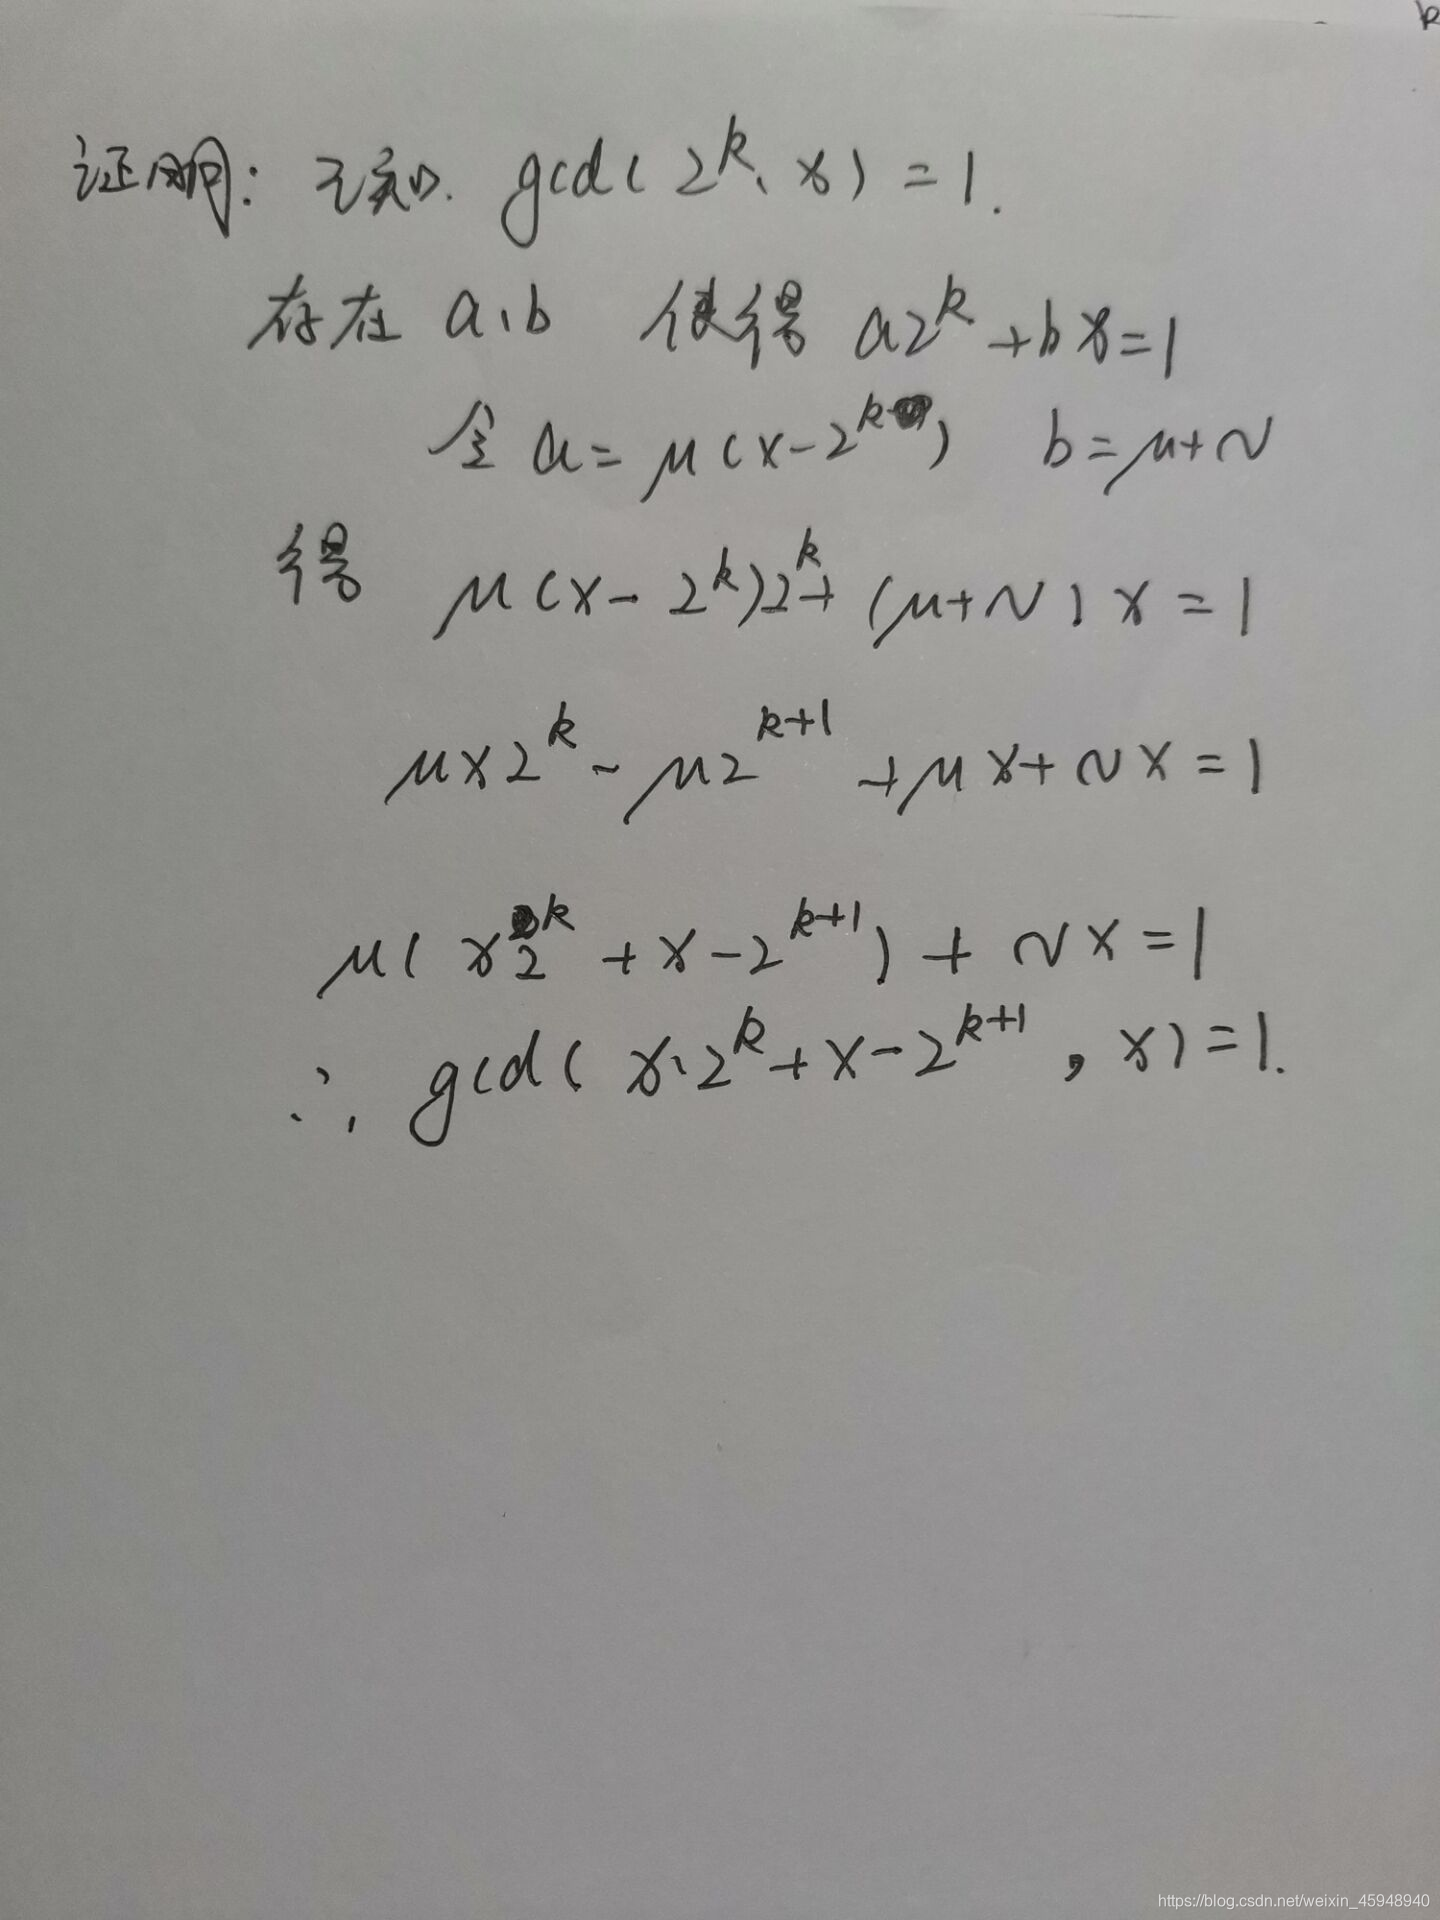 k
证明: 已知. gcd( 2^k、x) = 1.
存在 a、b 使得 a2^k + bx = 1
令 a = μ(x-2^k) b = μ+ν
得 μ(x-2^k)2^k + (μ+ν)x = 1
μx2^k - μ2^{k+1} + μx + νx = 1
μ( x2^k + x - 2^{k+1} ) + νx = 1
∴ gcd( x·2^k + x - 2^{k+1} , x) = 1.
https://blog.csdn.net/weixin_45948940